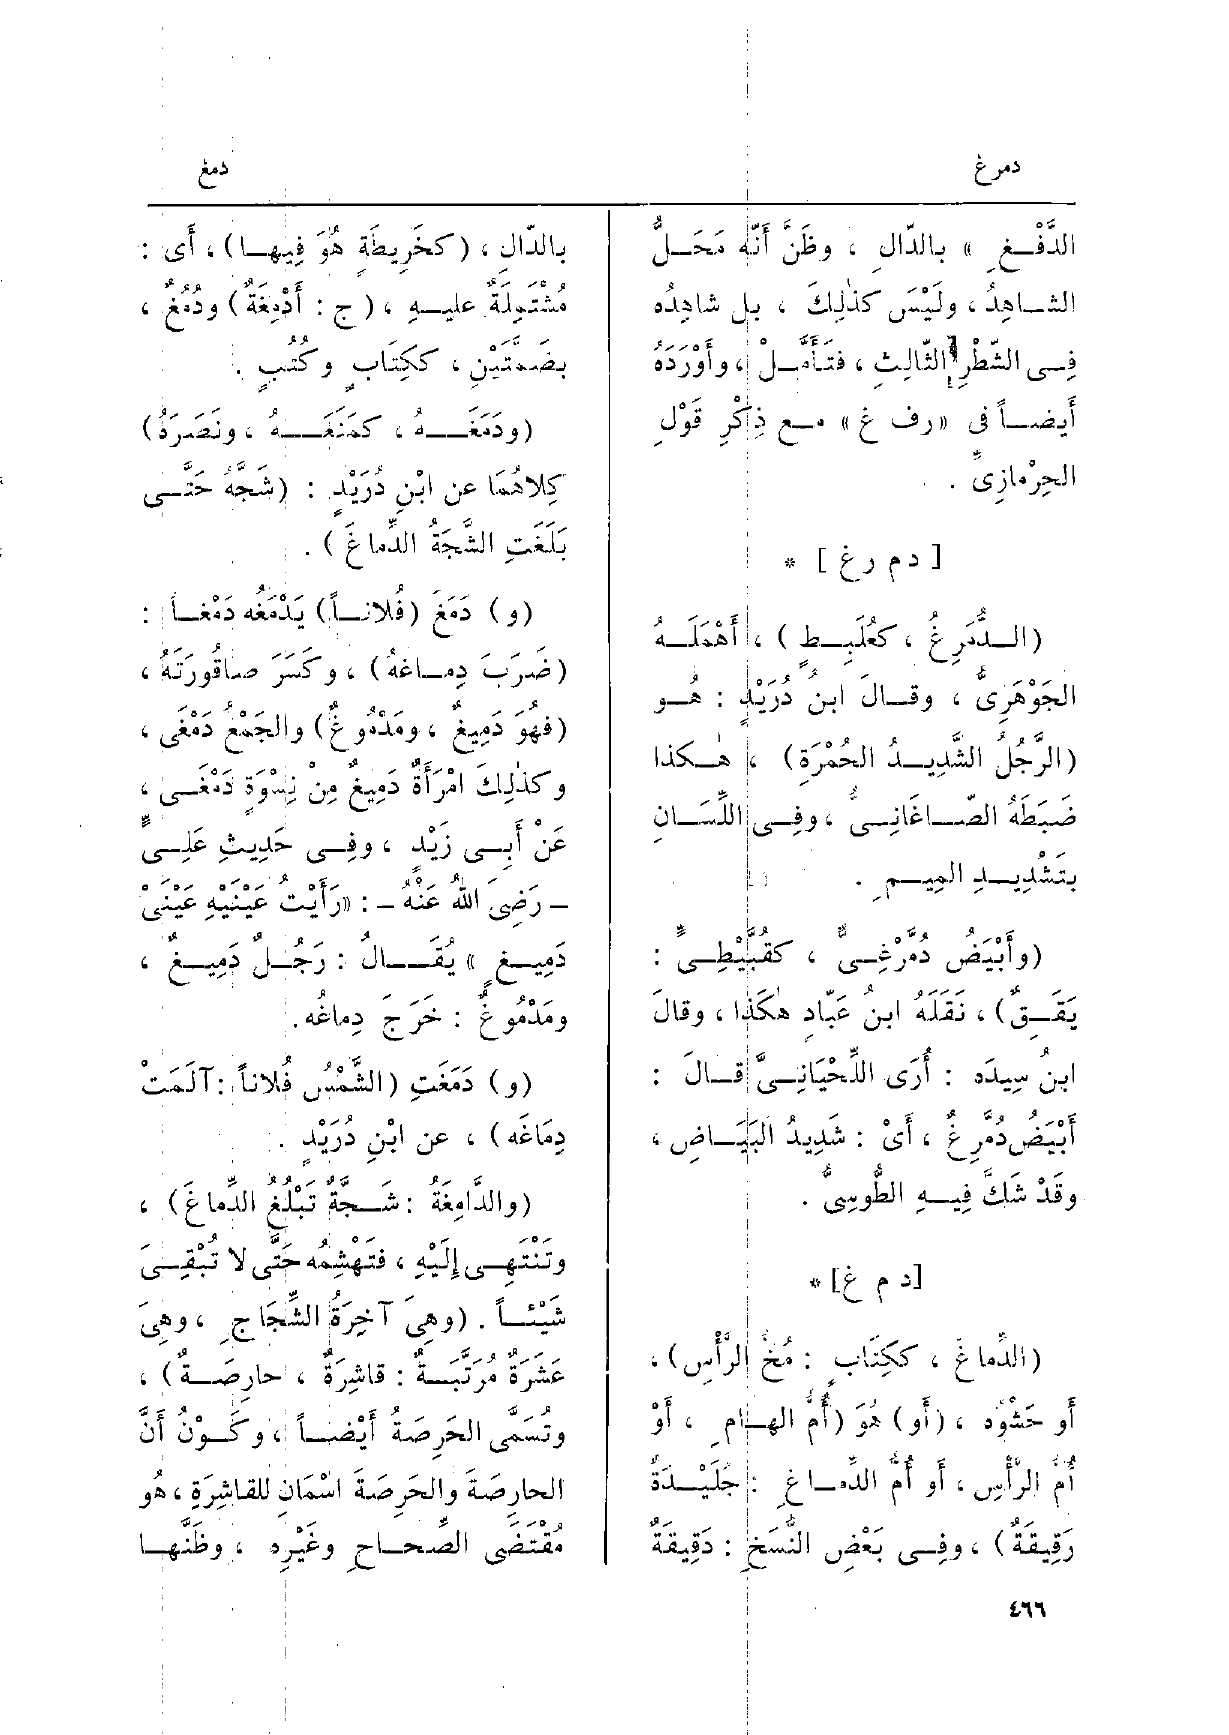 دمرغ
دمغ
الدَّفْغِ » بالدّالِ ، وظَنَّ أَنَّه مَحَلُّ
الشاهِدُ ، ولَيْسَ كذٰلِكَ ، بل شاهِدُه
فِى الشَّطْرِ الثّالِثِ ، فتَأَمَّلْ ، وأَوْرَدَهُ
أَيضاً فى «رف غ» مع ذِكْرِ قَوْلِ
الحِرْمازِىِّ .
[ د م ر غ ] *
(الدُّمَرِغُ ، كعُلَبِطٍ ) ، أَهْمَلَهُ
الجَوْهَرِىُّ ، وقالَ ابنُ دُرَيْدٍ : هُو
(الرَّجُلُ الشَّدِيدُ الحُمْرَةِ) ، هٰكذا
ضَبَطَهُ الصّاغَانِىُّ ، وفِى اللِّسَانِ
بتَشْدِيدِ المِيمِ .
(وأَبْيَضُ دُمَّرْغِىٌّ ، كقُبَّيْطِىٍّ :
يَقَقٌ) ، نَقَلَهُ ابنُ عَبّادٍ هٰكَذا ، وقالَ
ابنُ سِيدَه : أُرَى اللِّحْيَانِىَّ قالَ :
أَبْيَضُ دُمَّرِغٌ ، أَىْ : شَدِيدُ البَيَاضِ ،
وقَدْ شَكَّ فِيهِ الطُّوسِىُّ .
[د م غ] *
(الدِّماغُ ، ككِتَابٍ : مُخُّ الرَّأْسِ) ،
أَو حَشْوُه ، (أَو) هُوَ (أُمُّ الهامِ ، أَوْ
أُمُّ الرَّأْسِ ، أَو أُمُّ الدِّمَاغِ : جُلَيْدَةٌ
رَقِيقَةٌ) ، وفِى بَعْضِ النُّسَخِ : دَقِيقَةٌ
بالدّالِ ، (كخَرِيطَةٍ هُوَ فِيها) ، أَى :
مُشْتَمِلَةٌ عليهِ ، ( ج : أَدْمِغَةٌ) ودُمُغٌ ،
بضَمَّتَيْنِ ، ككِتَابٍ وكُتُبٍ .
(ودَمَغَهُ ، كمَنَعَهُ ، ونَصَرَهُ)
كِلاهُمَا عن ابْنِ دُرَيْدٍ : (شَجَّهُ حَتَّى
بَلَغَتِ الشَّجَةُ الدِّماغَ ) .
(و) دَمَغَ (فُلاناً) يَدْمَغُه دَمْغاً :
(ضَرَبَ دِماغَهُ) ، وكَسَرَ صاقُورَتَهُ ،
(فهُوَ دَمِيغٌ ، ومَدْمُوغٌ) والجَمْعُ دَمْغَى ،
وكذٰلِكَ امْرَأَةٌ دَمِيغٌ مِنْ نِسْوَةٍ دَمْغَى ،
عَنْ أَبِى زَيْدٍ ، وفِى حَدِيثِ عَلِىٍّ
– رَضِىَ اللهُ عَنْهُ – : «رَأَيْتُ عَيْنَيْهِ عَيْنَىْ
دَمِيغٍ » يُقَالُ : رَجُلٌ دَمِيغٌ ،
ومَدْمُوغٌ : خَرَجَ دِماغُه.
(و) دَمَغَتِ (الشَّمْسُ فُلاناً : آلَمَتْ
دِمَاغَه) ، عن ابْنِ دُرَيْدٍ .
(والدَّامِغَةُ : شَجَّةٌ تَبْلُغُ الدِّماغَ) ،
وتَنْتَهِى إِلَيْهِ ، فتَهْشِمُه حَتَّى لا تُبْقِىَ
شَيْئاً . (وهِىَ آخِرَةُ الشِّجَاجِ ، وهِىَ
عَشَرَةٌ مُرَتَّبَةٌ : قاشِرَةٌ ، حارِصَةٌ) ،
وتُسَمَّى الحَرِصَةُ أَيْضاً ، وكَوْنُ أَنَّ
الحارِصَةَ والحَرِصَةَ اسْمَانِ للقاشِرَةِ ، هُو
مُقْتَضَى الصِّحاحِ وغَيْرِه ، وظَنَّها
٤٦٦